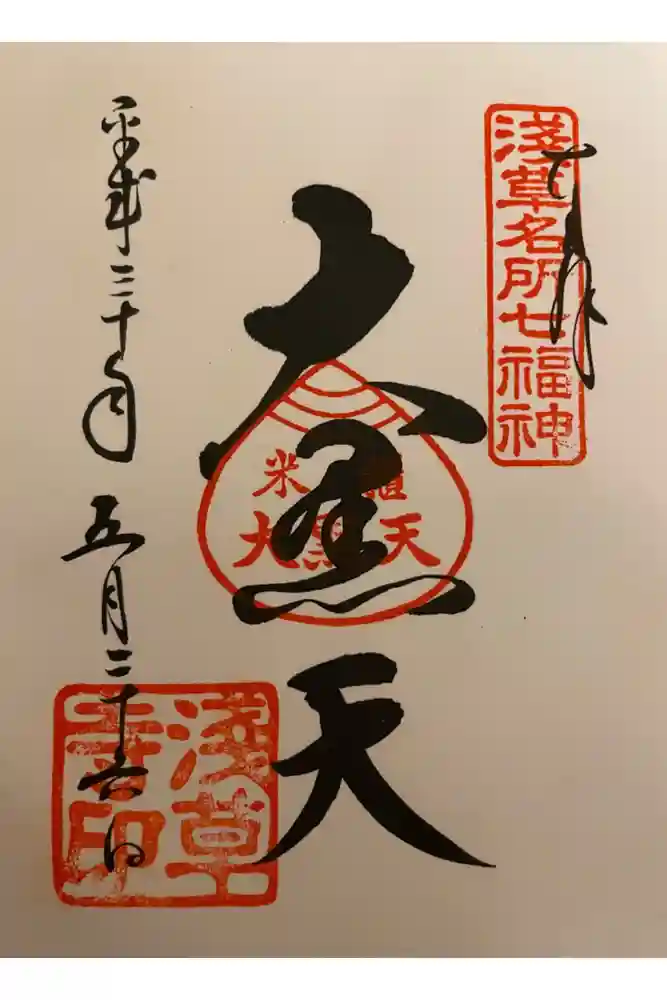 淺草名所七福神
奉拝
大黒天
米櫃
大黒天
平成三十年五月二十六日
淺草
寺印